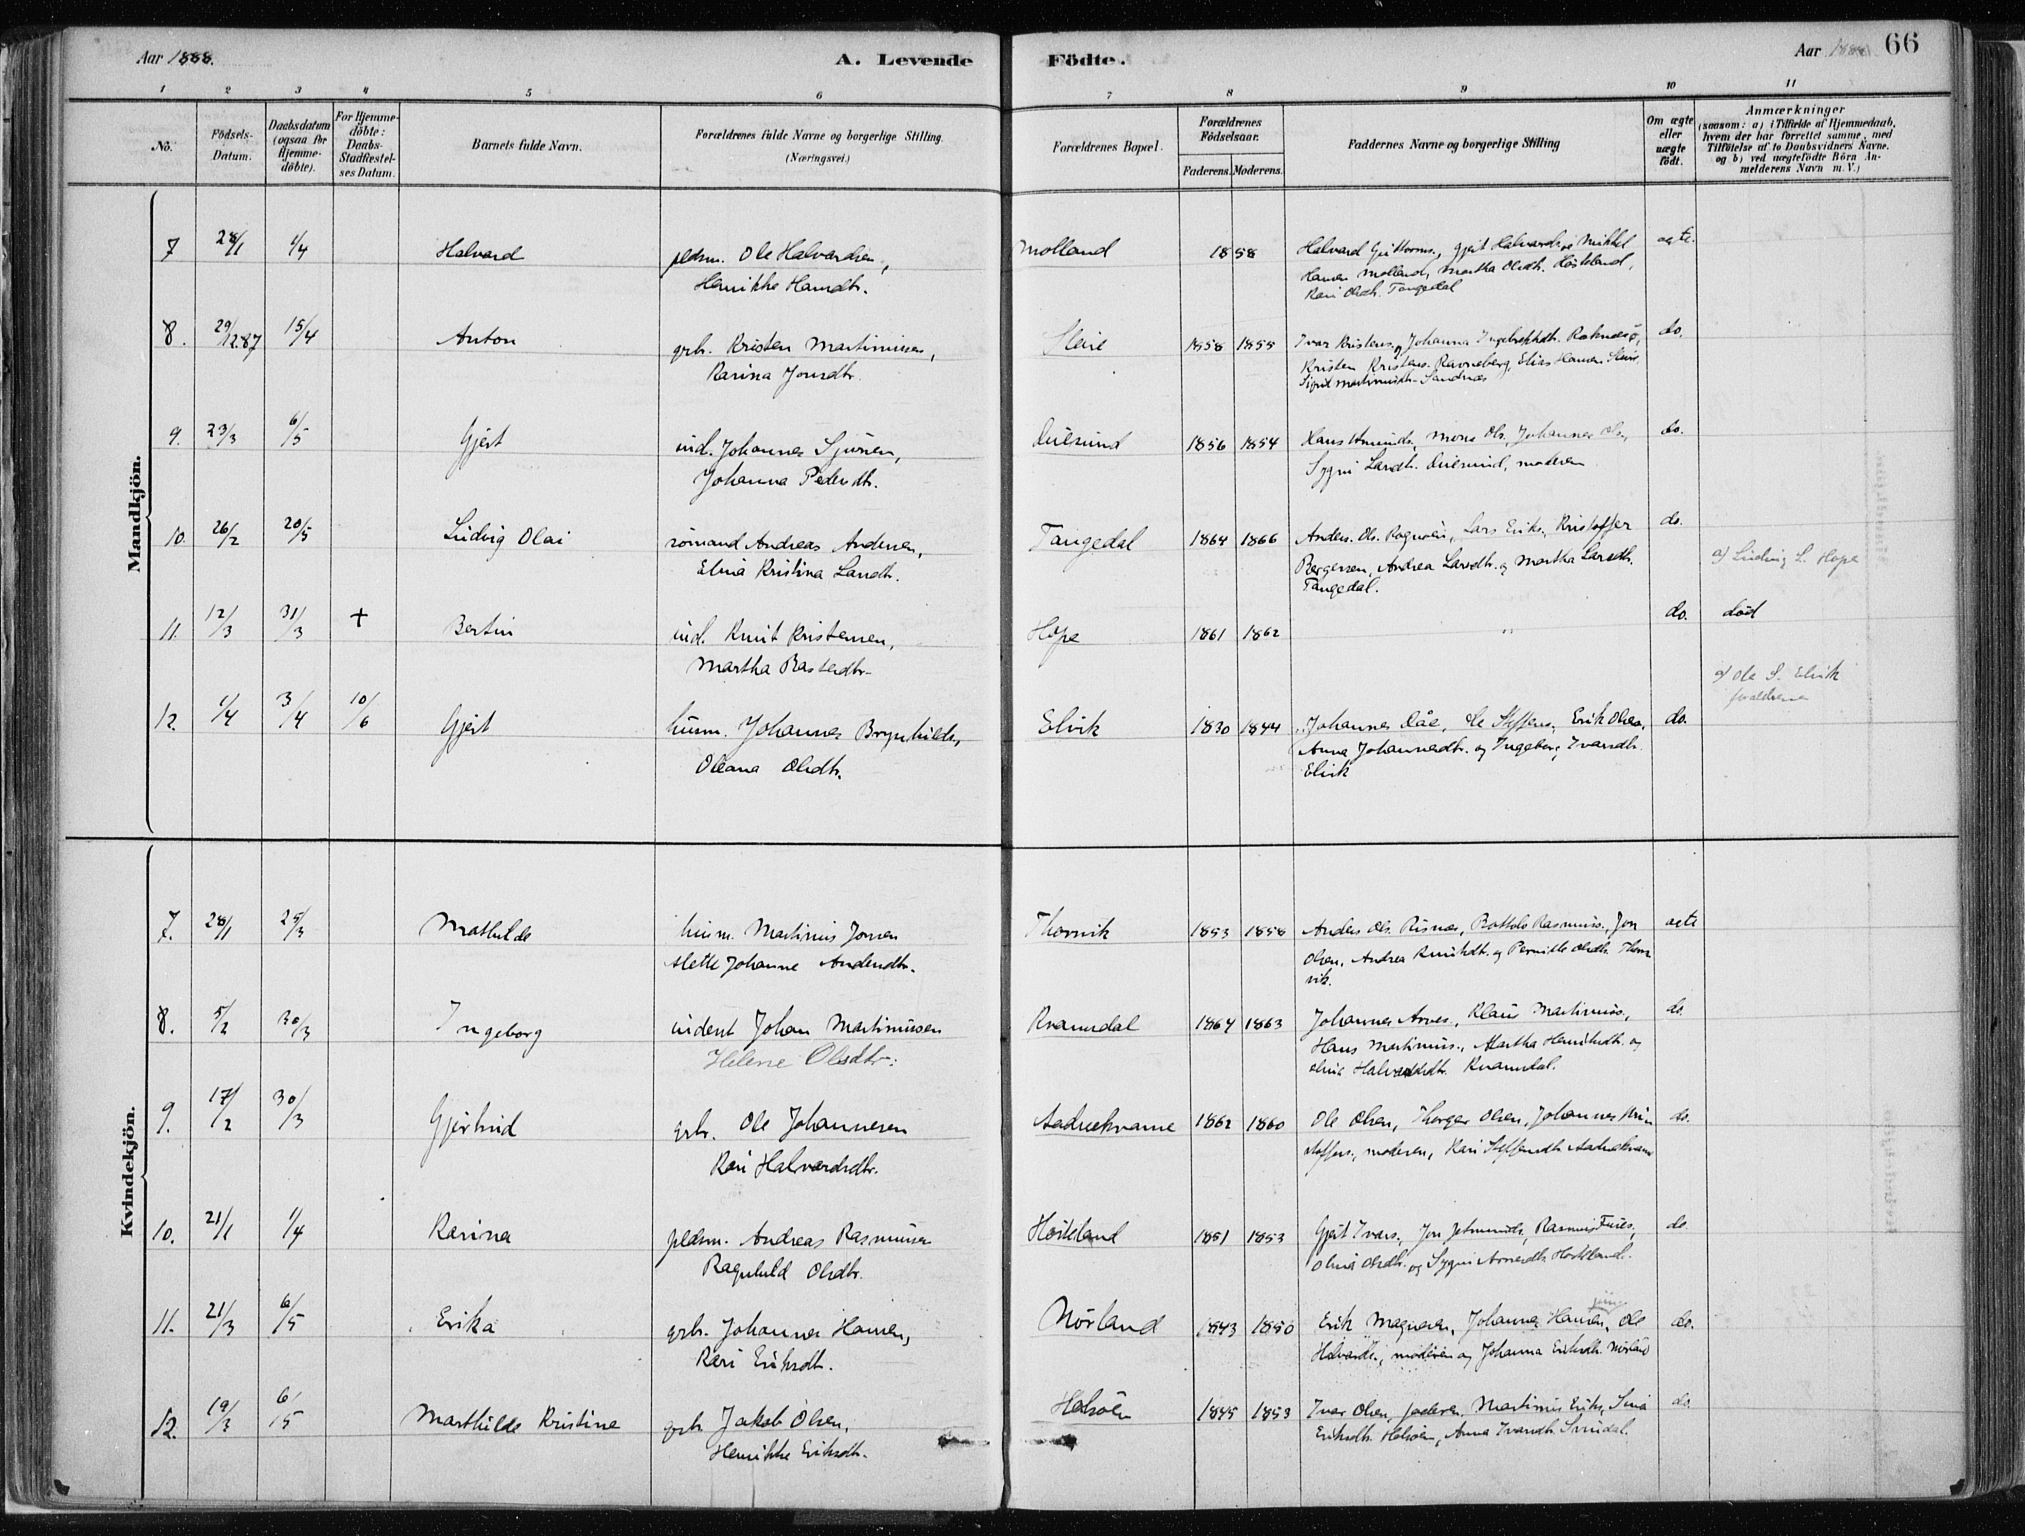 Aar 1888.
A. Levende
Födte.
Aar 1888
66
1 2 3 4 5 6 7 8 9 10 11
No.
Födsels-Datum.
Daabsdatum (ogsaa for Hjemme-döbte).
For Hjemme-döbte: Daabs-Stadfæstel-ses Datum.
Barnets fulde Navn.
Forældrenes fulde Navne og borgerlige Stilling. (Næringsvei.)
Forældrenes Bopæl.
Forældrenes Födselsaar.
Faderens. Moderens.
Faddernes Navne og borgerlige Stilling
Om ægte eller uægte födt.
Anmærkninger
(saasom: a) i Tilfælde af Hjemmedaab,
hvem der har forrettet samme, med
Tilföielse af to Daabsvidners Navne.
og b) ved uægtefödte Börn An-
melderens Navn m. V.)
Mandkjön.
7 28/1 1/4 Halvard pldsm. Ole Halvardsen, Molland 1858 Halvard Guttorms., Gjert Halvards. og Mikkel ægte.
Henrikke Hansdtr. Hansen Molland, Martha Olsdtr. Høisland,
Kari Olsdtr. Tangedal
8. 29/12.87 15/4 Anton grbr. Kristen Martinusen, Steine 1858 1855 Ivar Kristens. og Johanna Ingebrigtsdtr. do.
Karina Jonsdtr. Kristen Kristens. Ravneberg, Elias Hansen Steine
Sigrid Martinusdtr. Sandnæs
9. 23/3 6/5 Gjert ind. Johannes Sjursen, Duesund 1856 1854 Hans Amunds., Mons Ols., Johannes Ols., do.
Johanna Pedersdtr. Sygni Larsdtr. Duesund, moderen
10. 26/2 20/5 Ludvig Olai Andreas Andersen, Tangedal 1864 1866 Anders Ols. Lars Eriks., Kristoffer do.
Elina Kristina Larsdtr. Bergesen, Andrea Larsdtr. og Martha Larsdtr. a) Ludvig L. Hope
Tangedal.
11. 12/3 31/3 + Bertin ind. Knut Kristensen, Hope 1861 1862 " do. död
Martha Rastesdtr.
a) Ole S. Elvik
forældrene
12. 1/4 3/4 10/6 Gjert husm. Johannes Brynhilds., Elvik 1830 1844 Johannes Ole Steffens., Erik Olsen, do.
Oleana Olsdtr. Anna Johannesdtr. og Ingeborg Ivarsdtr.
Elvik
Kvindekjön.
7. 28/1 25/3 Mathilde husm. Martinus Jonsen Thorsvik 1853 1858 Anders Ols. Risnæs, Rasmus., Jon ægte
Mette Johanne Andersdtr. Olsen, Andrea Knutsdtr. og Pernille Olsdtr. Thors
vik.
8. 5/2 30/3 Ingeborg inderst Johan Martinussen Kvamsdal 1864 1863 Johannes Arnes., Klaus Martinus., do.
Helene Olsdtr. Hans Martinus., Martha Henriksdtr. og
Olina Halvardsdtr. Kvamsdal.
9. 17/2 30/3 Gjertrud grbr. Ole Johannesen 1862 1860 Ole Olsen, Olsen, Johannes Kri do.
Kari Halvardsdtr. stoffers., moderen, Kari Steffensdtr.
10. 21/1 1/4 Karina pldsm. Andreas Rasmusen Høisland 1851 1853 Gjert Ivars., Jon Rasmus do.
Ragnhild Olsdtr. Olina Olsdtr. og Sygni Arnesdtr. Høisland.
11. 21/3 6/5 Erika grbr. Johannes Hansen, Nörland 1843 1850 Erik Magnesen, Johannes Hansen, Ole do.
Kari Eriksdtr. Halvards., moderen og Johanna Eriksdtr. Nörland
12. 19/3 6/5 Marthilde Kristine grbr. Jakob Olsen, 1845 1853 Ivar Olsen, faderen, Martinus Eriks., Sina do.
Henrikke Eriksdtr. Eriksdtr. Anna Ivarsdtr.